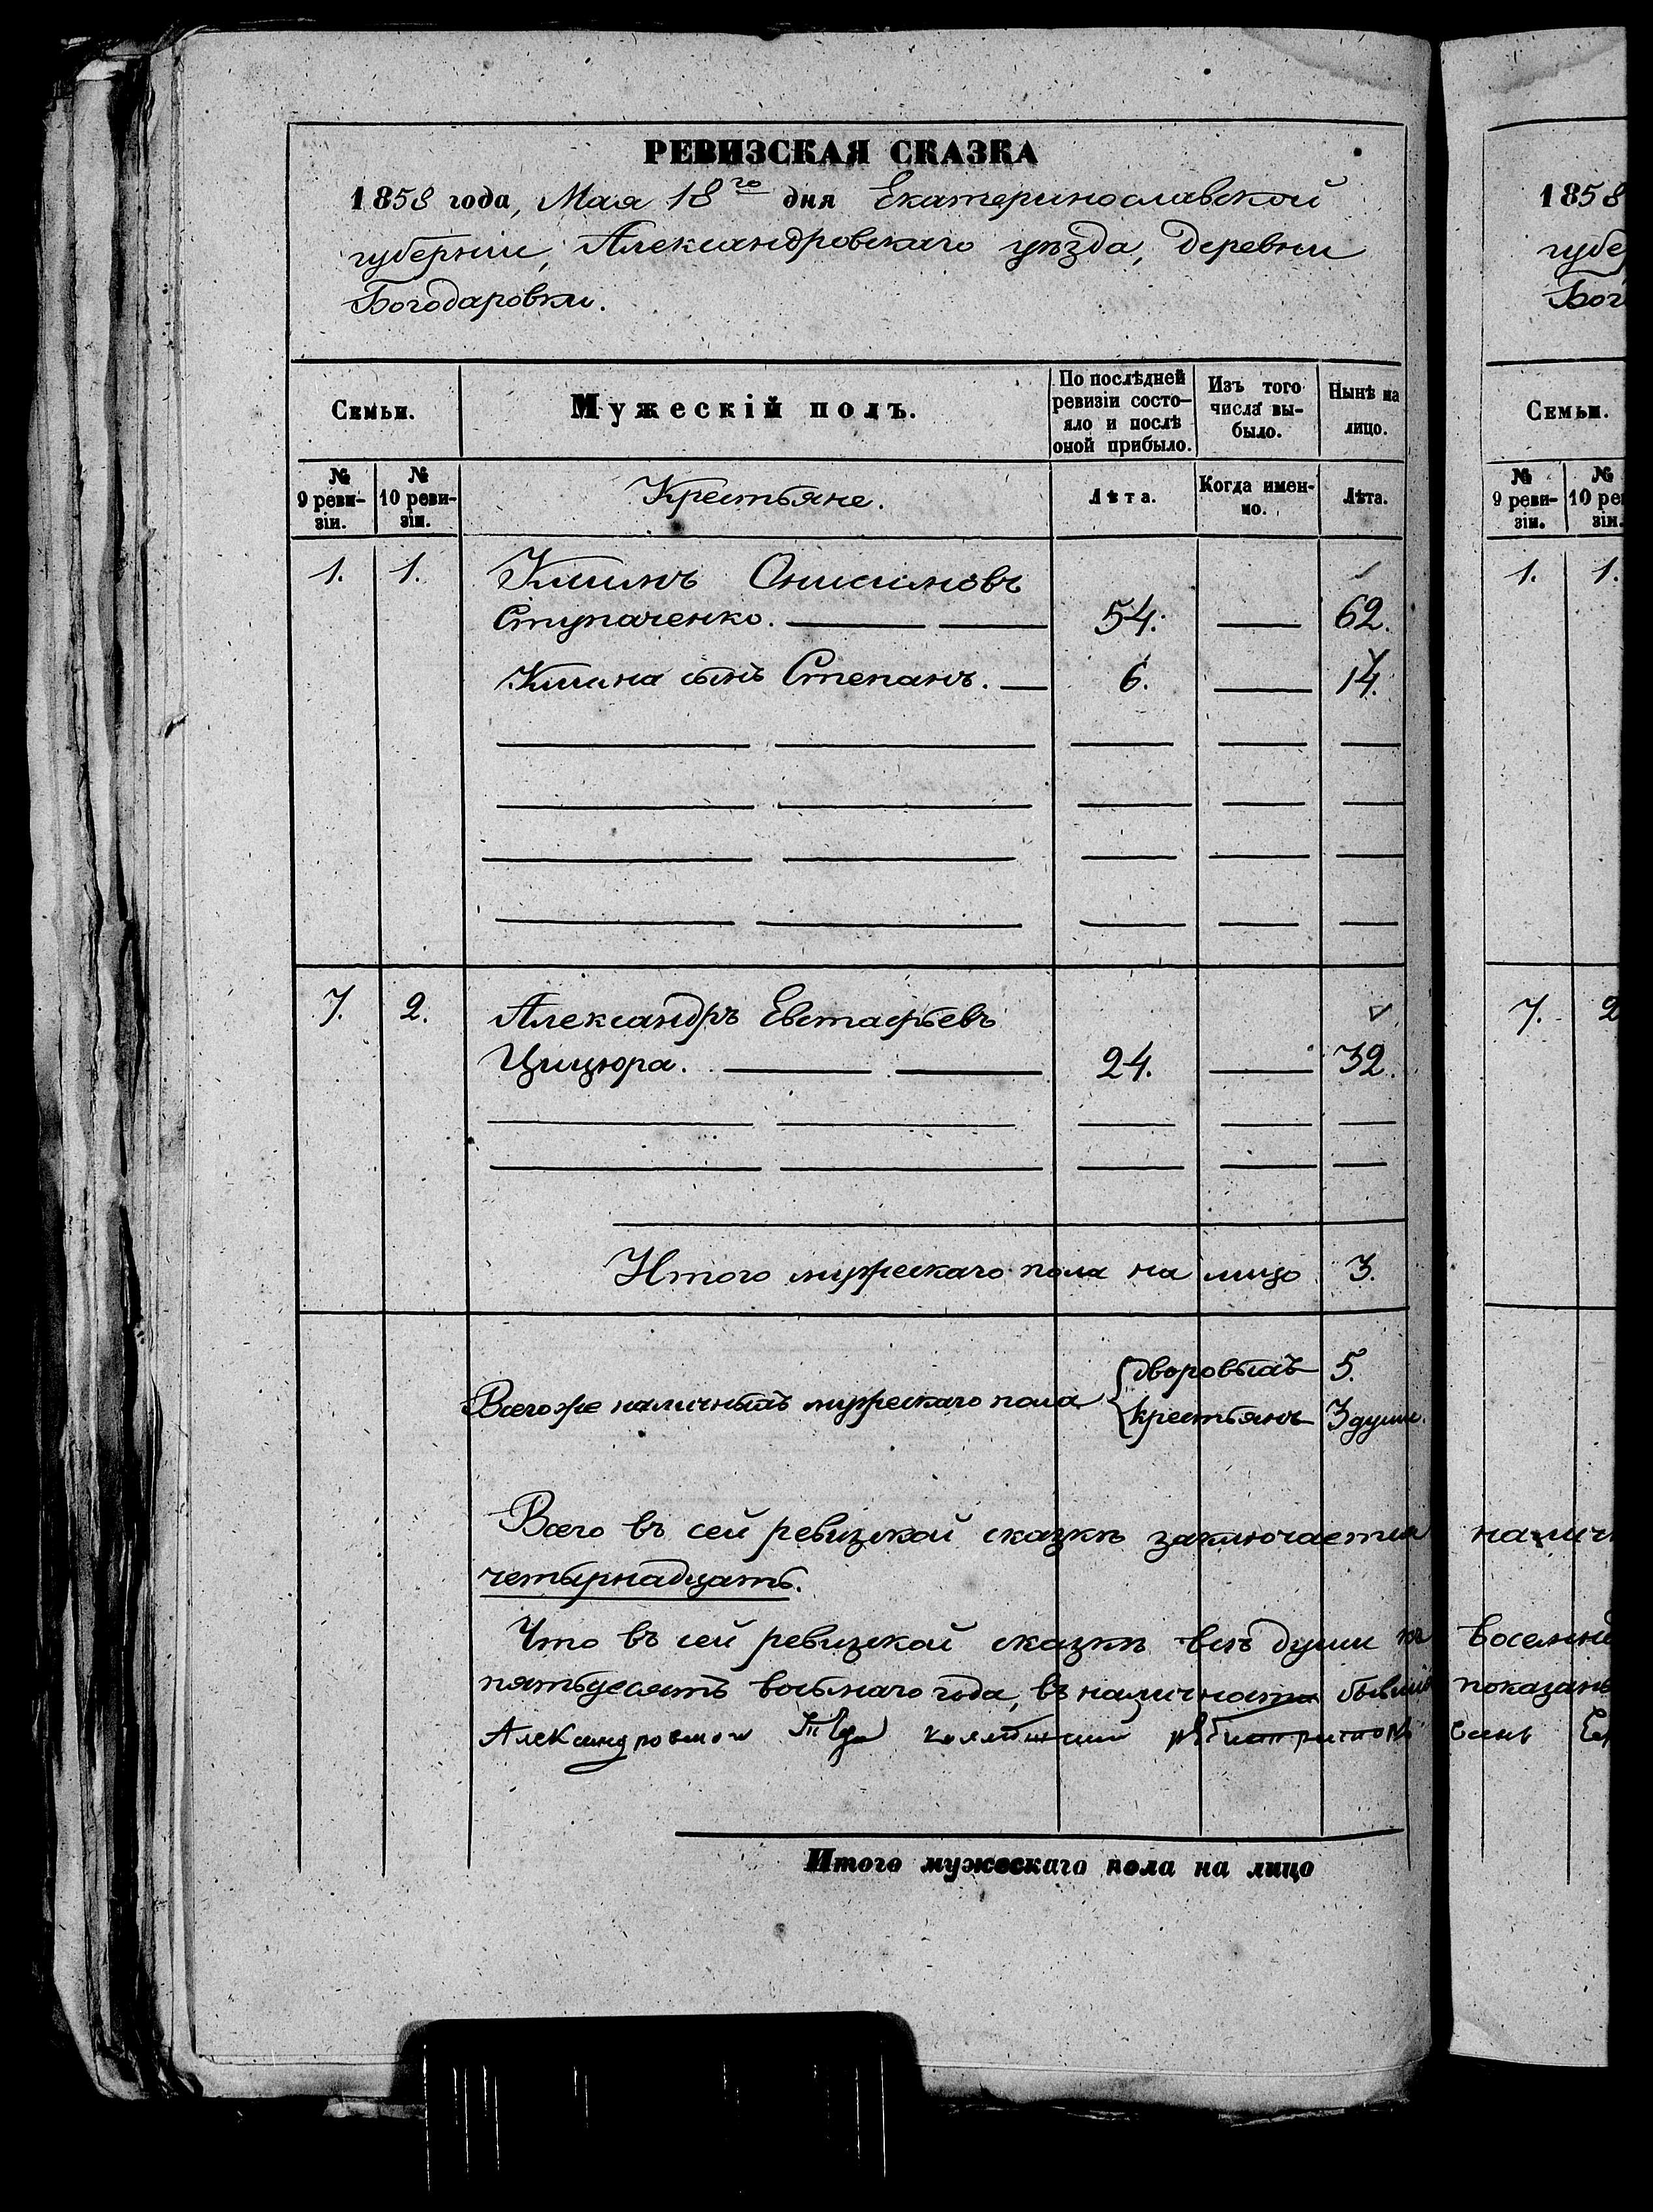 РЕВИЗСКАЯ СКАЗКА
1858 года, Мая 18го дня Екатеринославской
губернии, Александровскаго уѣзда, деревни
Богодаровки.
Семьи.
Мужескій полъ.
По послѣдней
ревизіи состо-
яло и послѣ
оной прибыло.
Изъ того
числа вы-
было.
Нынѣ на
лицо.
№
9 реви-
зіи.
№
10 реви-
зіи.
Крестьяне.
Лѣта.
Когда имен-
но.
Лѣта.
1. 1. Климъ Онисимовъ
Ступаченко. 54. 62.
Клима сынъ Степанъ. 6. 14.
7. 2. Александръ Евстафьевъ
Цицюра. 24. 32.
Итого мужескаго пола на лицо 3.
Всего же наличныхъ мужескаго пола
дворовыхъ 5.
крестьянъ 3 души.
Всего въ сей ревизской сказкѣ заключается
четырнадцать.
Что въ сей ревизской сказкѣ всѣ души
пятьдесятъ восьмаго года, въ наличности бывшія
Итого мужескаго пола на лицо
1858
губер
Бог
Семьи.
№
9 реви-
зіи.
№
10 рев
зіи.
1. 1.
7. 2
налич
восемн
показан